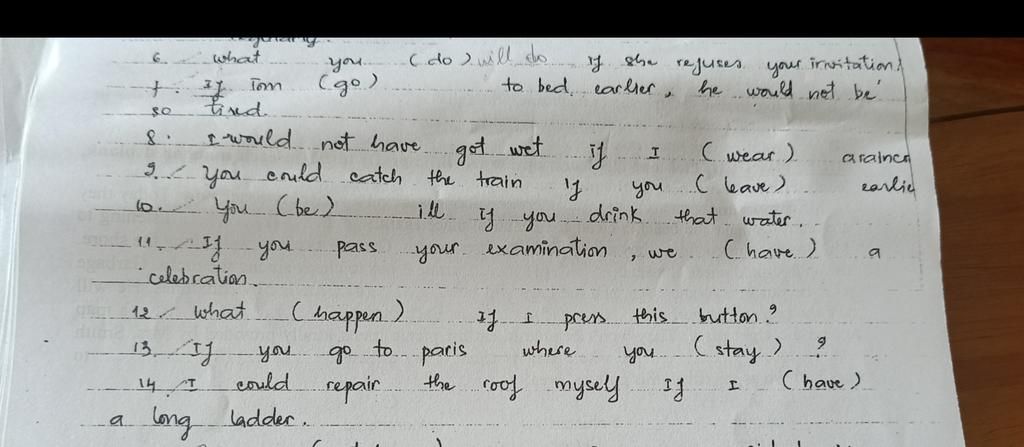 6. what you (do) will do if she refuses your invitation?
7. If Tom (go) to bed earlier, he would not be
so tired.
8. I would not have got wet if I (wear) a raincr
9. You could catch the train if you (leave) earlie
10. You (be) ill if you drink that water.
11. If you pass your examination, we (have) a
celebration.
12. what (happen) If I press this button?
13. If you go to paris where you (stay) ?
14. I could repair the roof myself If I (have)
a long ladder.